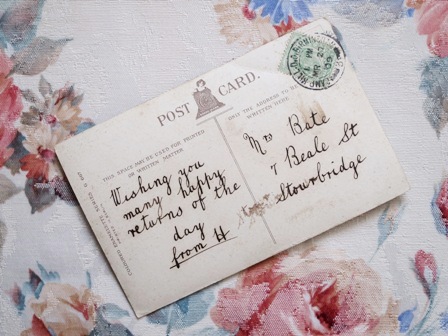 POST CARD.
THIS SPACE MAY BE USED FOR PRINTED
OR WRITTEN MATTER.
ONLY THE ADDRESS TO BE
WRITTEN HERE.
Wishing you
many happy
returns of the
day
from H
Mrs Bate
7 Beale St
Stourbridge